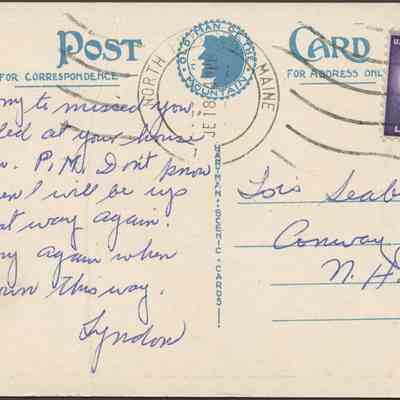 POST CARD
FOR CORRESPONDENCE
FOR ADDRESS ONL
OLD MAN OF THE MOUNTAIN
NORTH
MAINE
HARTMAN-SCENIC-CARDS!!
ny to missed you,
led at your house
P.M. Don't know
en I will be up
t way again.
ny again when
own this way.
Lyndon
Lois Seab
Conway
N. H.